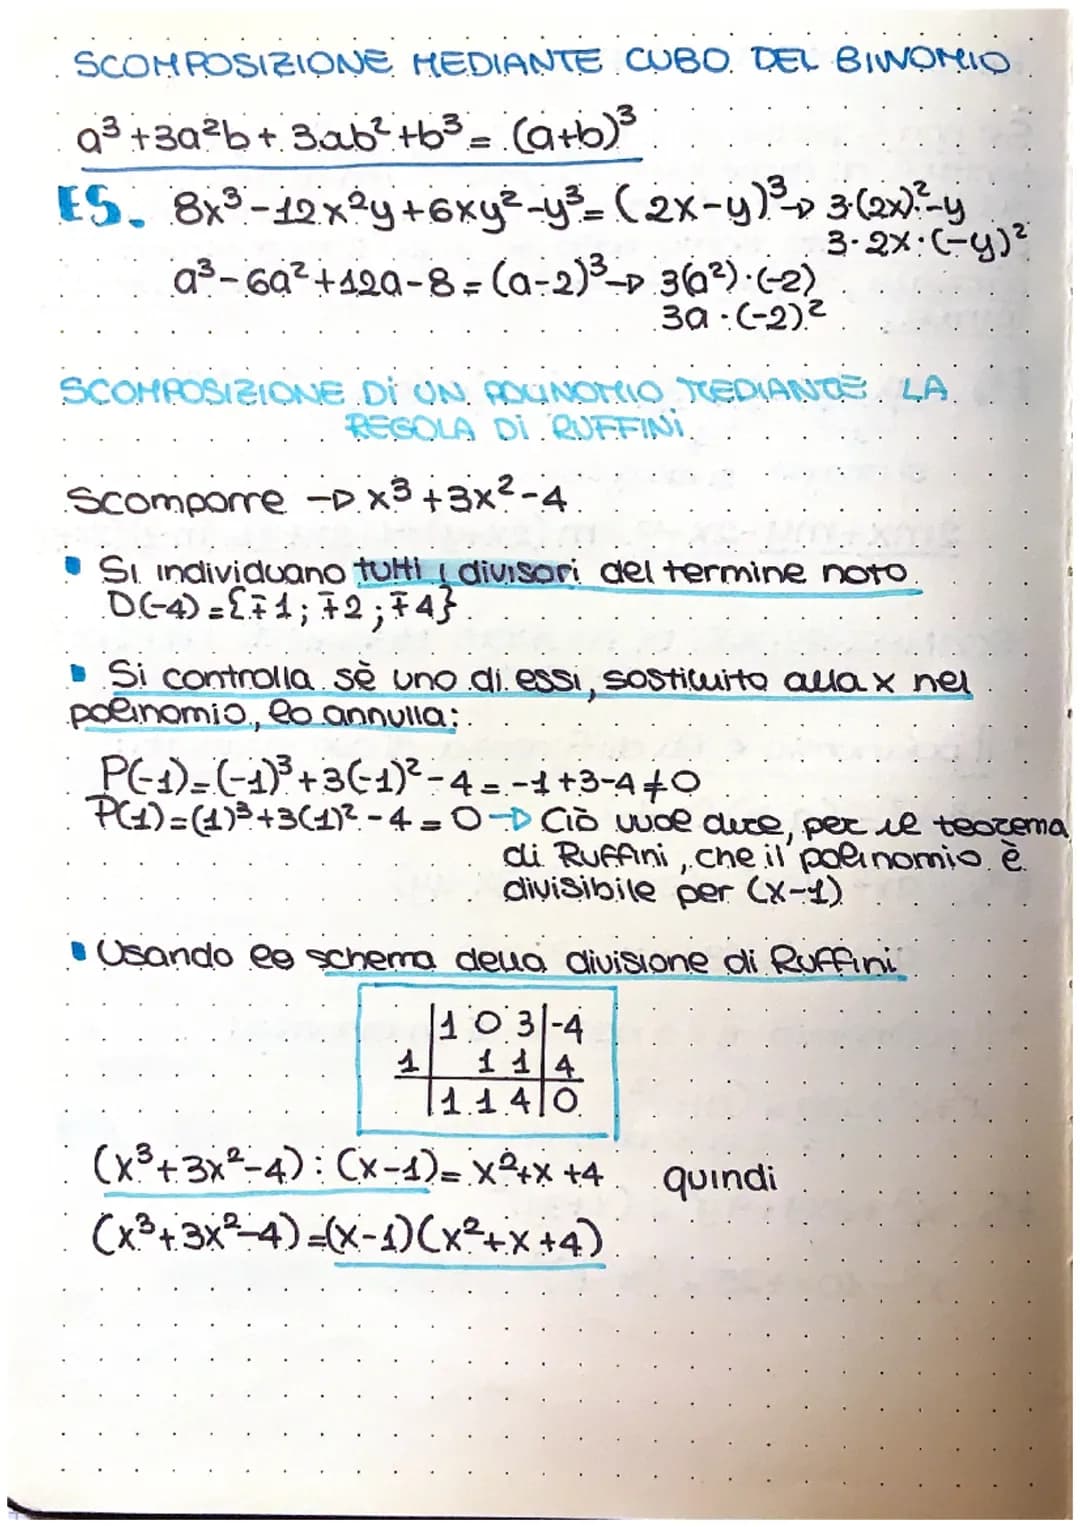 SCOMPOSIZIONE MEDIANTE CUBO DEL BINOMIO
a³+3a²b+3ab²+b³=(a+b)³
ES. 8x³-12x²y+6xy²-y³=(2x-y)³→3·(2x)²-y
3·2x·(-y)²
a³-6a²+12a-8=(a-2)³→3(a²)·(-2)
3a·(-2)²
SCOMPOSIZIONE Di UN POLINOMIO MEDIANTE LA
REGOLA Di RUFFINi
Scomporre → x³+3x²-4
Si individuano tutti i divisori del termine noto
D(-4)={∓1; ∓2; ∓4}
Si controlla sè uno di essi, sostituito alla x nel
polinomio, lo annulla:
P(-1)=(-1)³+3(-1)²-4=-1+3-4≠0
P(1)=(1)³+3(1)²-4=0→ Ciò vuole dire, per il teorema
di Ruffini, che il polinomio è
divisibile per (x-1)
Usando lo schema della divisione di Ruffini
|1 0 3|-4
1| 1 1|4
|1 1 4|0
(x³+3x²-4):(x-1)=x²+x+4 quindi
(x³+3x²-4)=(x-1)(x²+x+4)